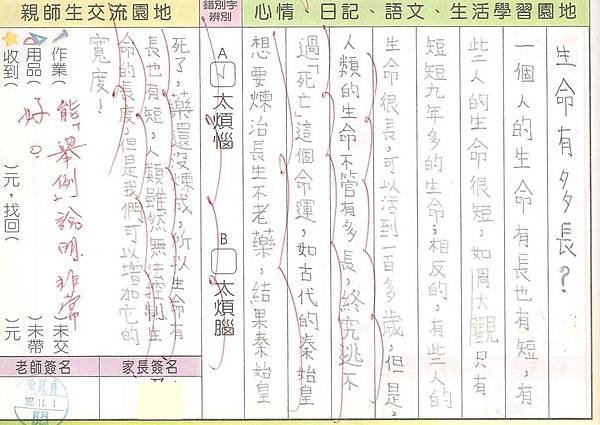 心情、日記、語文、生活學習園地
生命有多長?
一個人的生命有長也有短,有
些人的生命很短,如周大觀只有
短短九年多的生命;相反的,有些人的
生命很長,可以活到一百多歲,但是,
人類的生命不管有多長,終究逃不
過「死亡」這個命運,如古代的秦始皇
想要煉治長生不老藥,結果秦始皇
錯別字辨別
A ✓ 太煩惱
B 太煩腦
親師生交流園地
死了,藥還沒煉成,所以生命有
長也有短,人類雖然無法控制生
命的長度,但是我們可以增加它的
寬度!
能舉例說明,非常
好。
作業( )未交
用品( )未帶
收到( )元,找回( )元
家長簽名
老師簽名